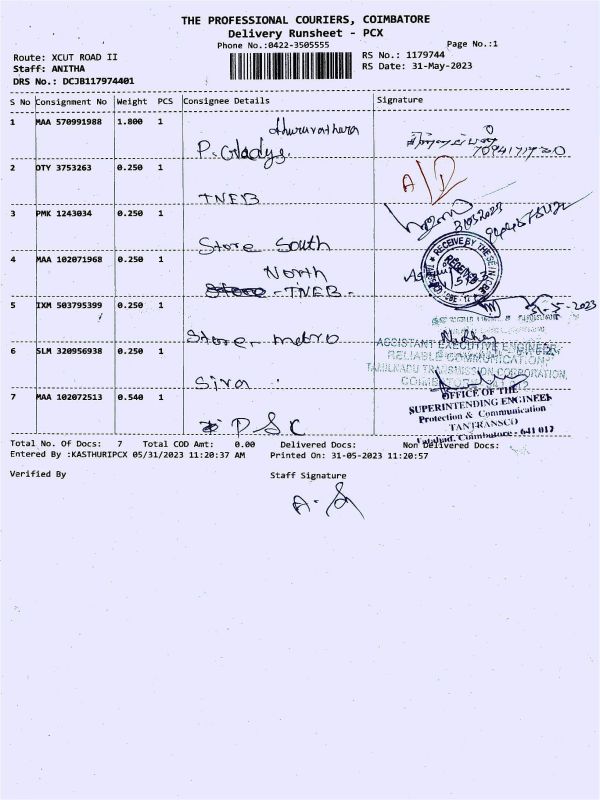 THE PROFESSIONAL COURIERS, COIMBATORE
Delivery Runsheet - PCX
Phone No.:0422-3505555 Page No.:1
Route: XCUT ROAD II RS No.: 1179744
Staff: ANITHA RS Date: 31-May-2023
DRS No.: DCJB117974401
S No Consignment No Weight PCS Consignee Details Signature
1 MAA 570991988 1.800 1
P. Gladys.
2 OTY 3753263 0.250 1
TNEB
3 PMK 1243034 0.250 1
Store South
4 MAA 102071968 0.250 1 North
TNEB -
5 IXM 503795399 0.250 1 31-5-2023
Store metro
ASSISTANT EXECUTIVE ENGINEER
6 SLM 320956938 0.250 1 RELIABLE COMMUNICATION
TAMILNADU TRANSMISSION CORPORATION,
Siva
7 MAA 102072513 0.540 1 OFFICE OF THE
SUPERINTENDING ENGINEER
Protection & Communication
P S C TANTRANSCO
Tatabad, Coimbatore - 641 012
Total No. Of Docs: 7 Total COD Amt: 0.00 Delivered Docs: Non Delivered Docs:
Entered By :KASTHURIPCX 05/31/2023 11:20:37 AM Printed On: 31-05-2023 11:20:57
Verified By Staff Signature